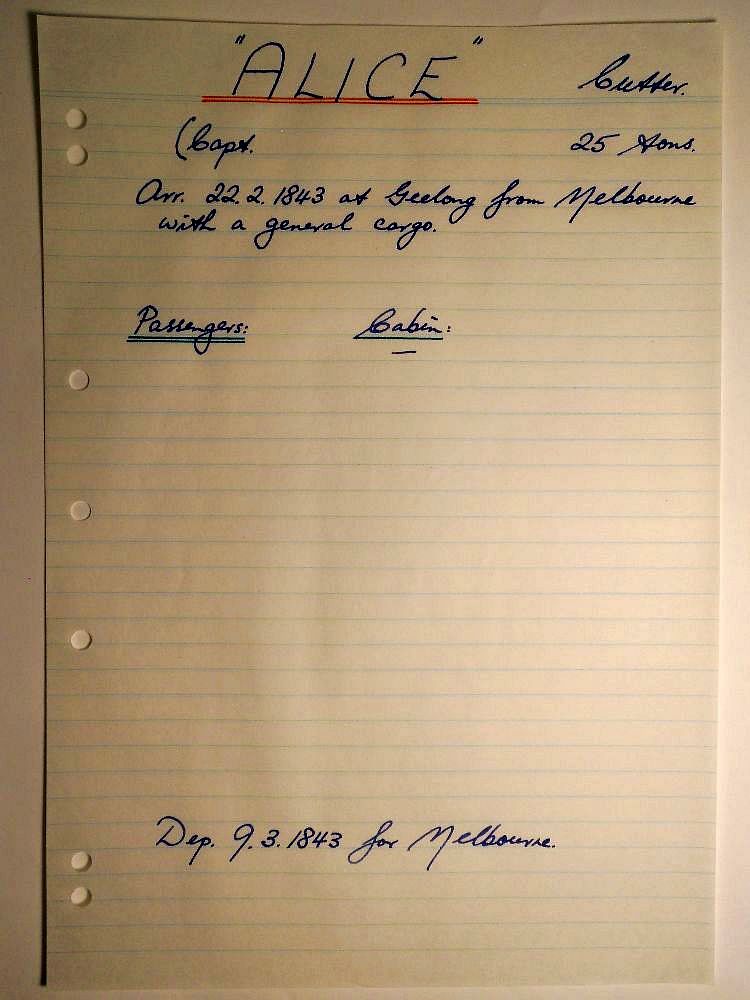 "ALICE" Cutter.
(Capt. 25 tons.
Arr. 22.2.1843 at Geelong from Melbourne
with a general cargo.
Passengers: Cabin:
—
Dep. 9.3.1843 for Melbourne.